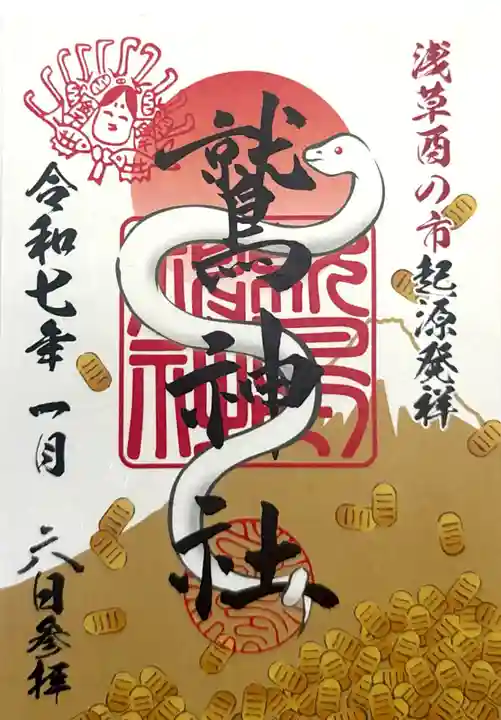 浅草酉の市起源発祥
鷲神社
令和七年 一月 六日参拝